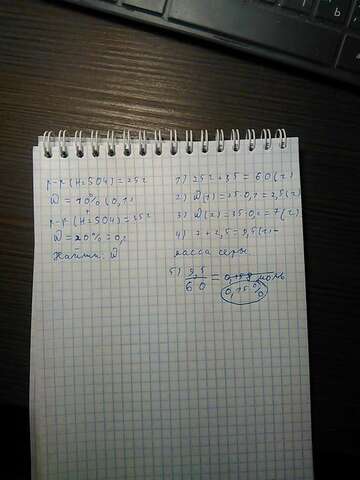 р-р (H2SO4) = 25г
W = 10% (0,1)
+
р-р (H2SO4) = 35г
W = 20% = 0,
Найти: W
1) 25г + 35 = 60 (г)
2) W(1) = 25·0,1 = 2,5 (г)
3) W(2) = 35·0,2 = 7 (г)
4) 7 + 2,5 = 9,5 (г) -
масса серы
5) 9,5
60 = 0,158 моль
0,15%